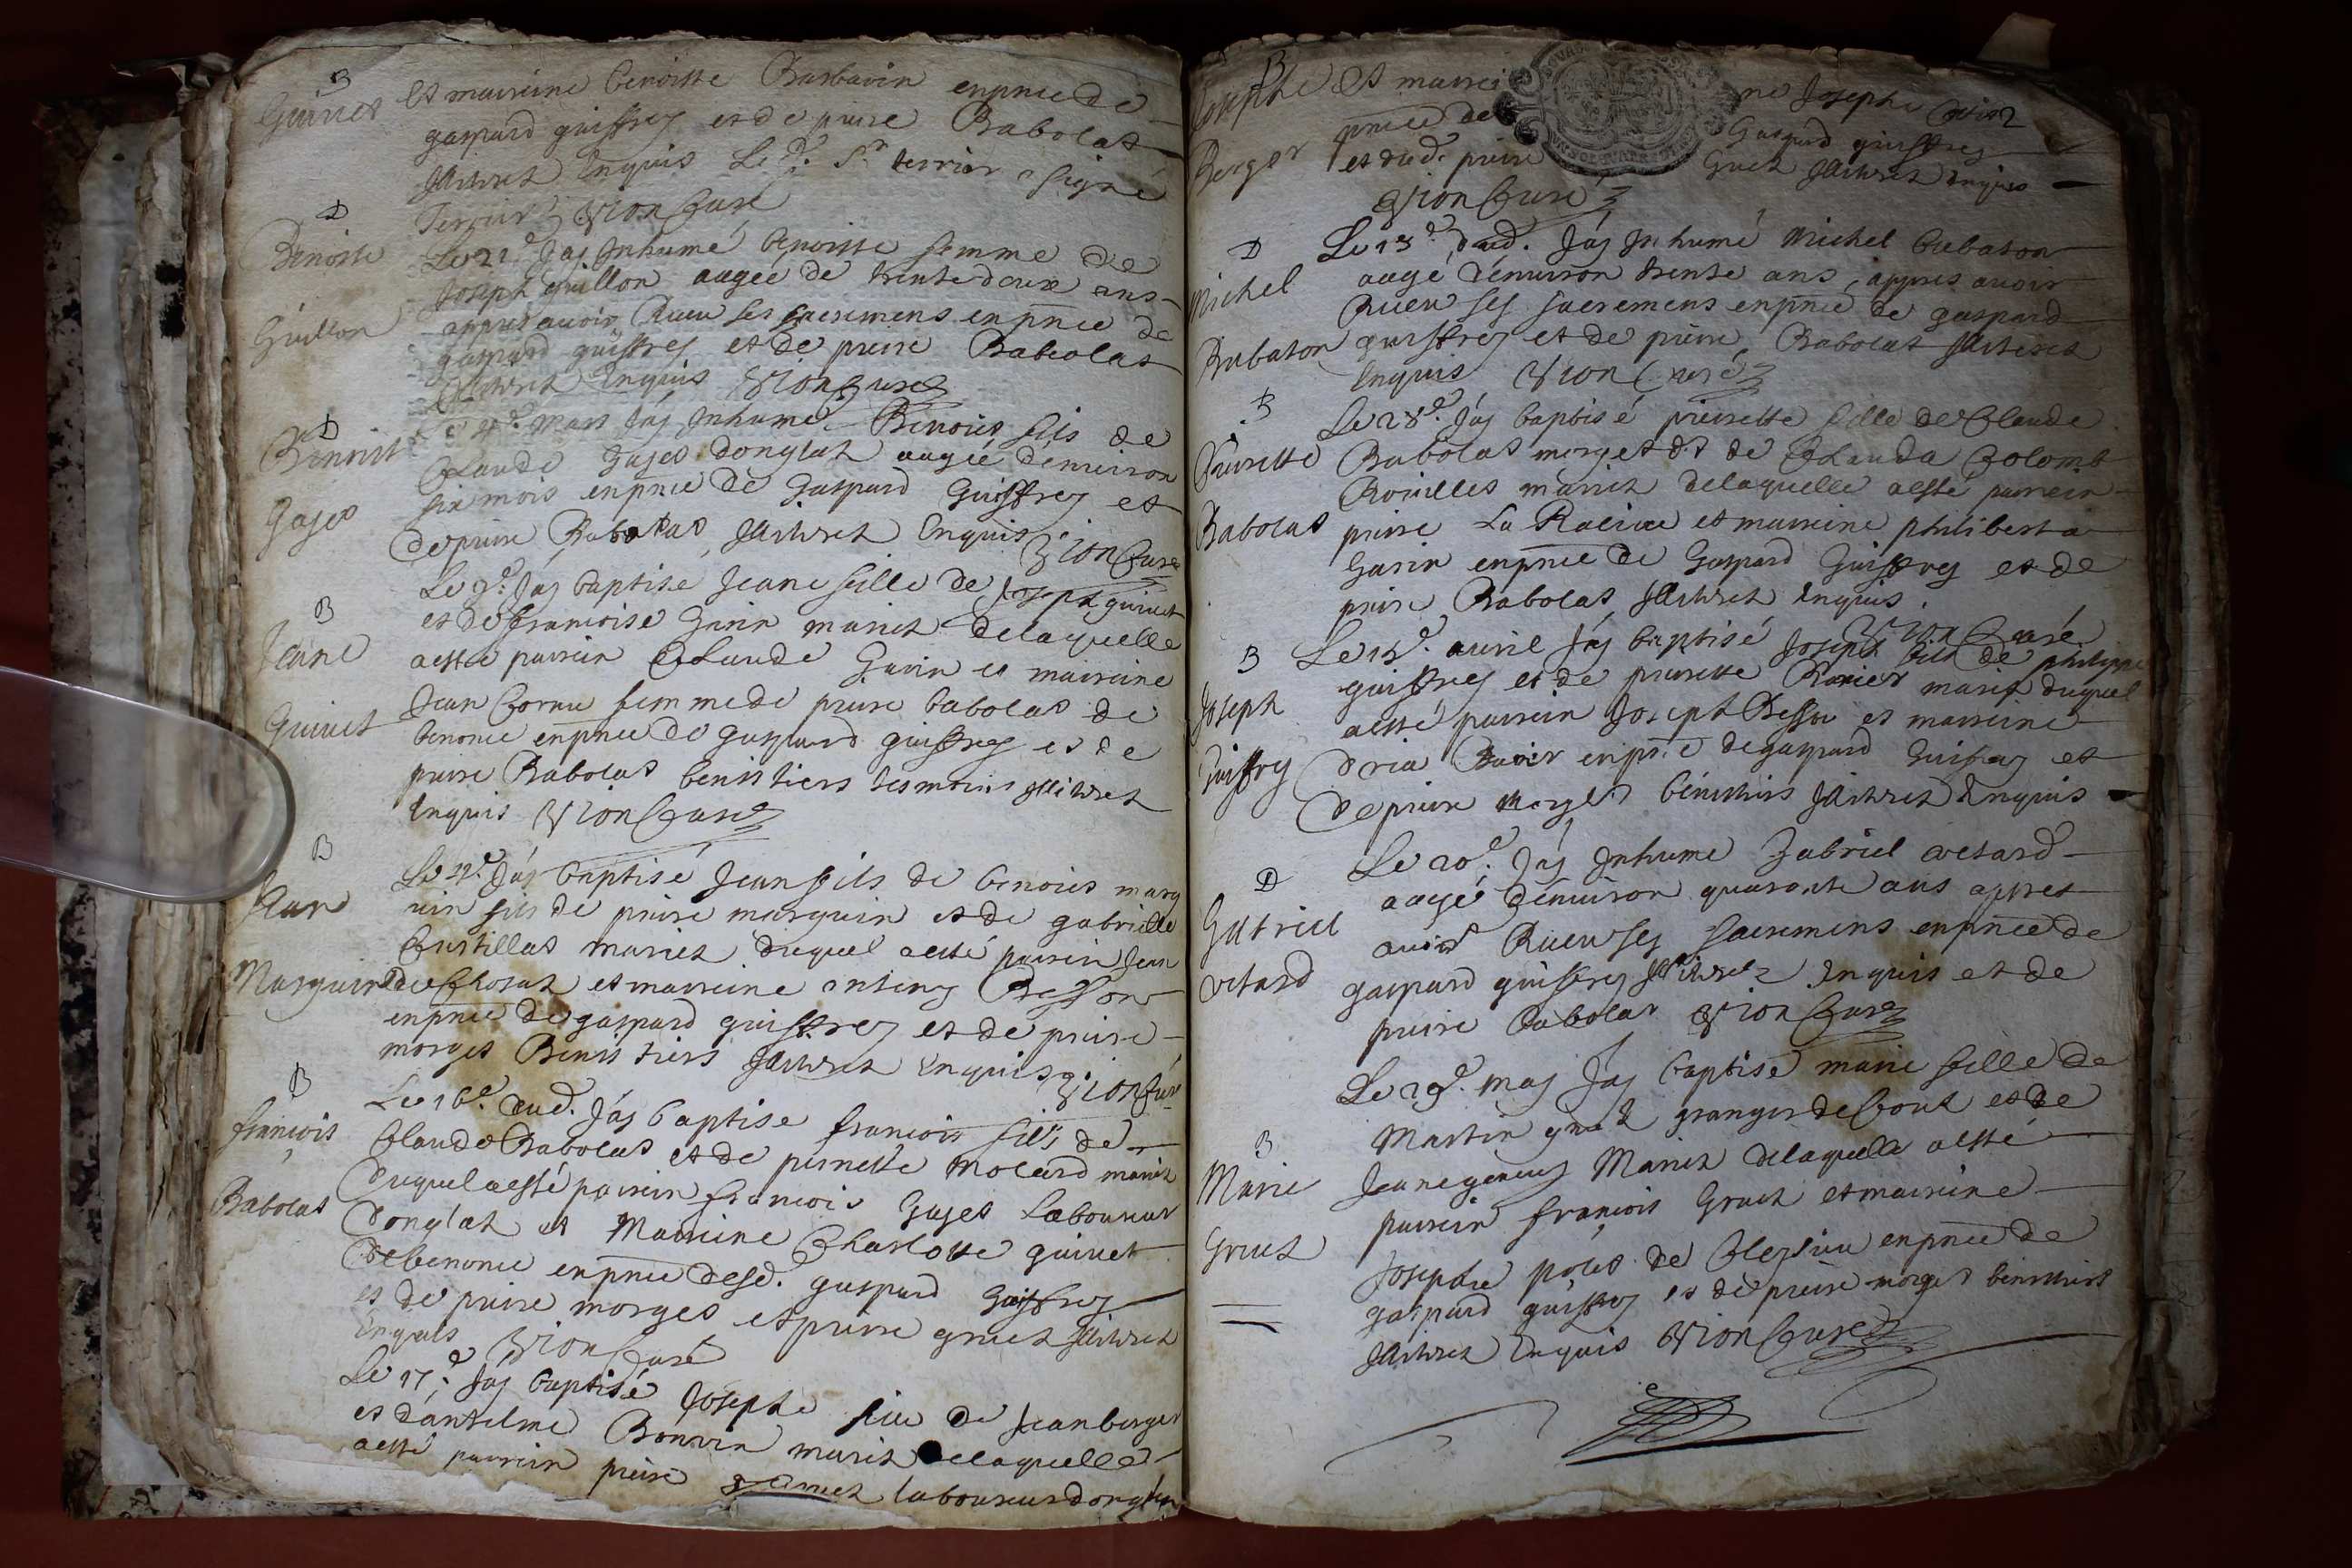 B
Guinet
Et marreine benoiste Barbarin enpnce de
gaspard guiffrey et de piere Babolat
illitres Enquis Le d. Sr terrier signé
Terrier Vion Curé
D
Benoiste
Guillon
Le 21e Jay Inhumé benoiste femme de
Joseph guillon augee de trente deux ans
appres avoir Receu ses sacremens enpnce de
gaspard guiffrey et de piere Babolat
illitres Enquis Vion Curé
D
Benoist
Gages
Le 4e mars Jay Inhumé Benoist fils de
Claude Gages donglat augé denviron
six mois enpnce de Gaspard Guiffrey et
de piere Babolas illitres Enquis
Vion Curé
B
Jeane
Guinet
Le 9e Jay baptisé Jeane fille de Joseph guinet
et de francoise Garin mariez delaquelle
a esté parrein Claude Garin et marreine
Jean Cornu femme de piere babolas de
benonce enpnce de gaspard guiffrey et de
piere Babolas benistiers tesmoins illitres
Enquis Vion Curé
B
Jean
Marguin
Le 12e Jay baptisé Jean fils de benoist marg
uin fils de piere marguin et de gabrielle
Curtillas mariez duquel a esté parrein Jean
enpnce de gaspard guiffrey et de piere
morges Benistiers illitres Enquis Vion Curé
B
françois
Babolas
Le 16e dud. Jay baptise francois fils de
Claude Babolas et de pernette molard mariez
duquel a esté parrein francois Gages Laboureur
donglat et Marreine Charlotte guinet
de benonce enpnce desd. gaspard Guiffrey
et de piere morges et piere gruet illitres
Enquis Vion Curé
Le 17e Jay baptisé Josephe fille de Jean berger
et dantelme Bonvin mariez delaquelle
a esté parrein piere gruet laboureur donglas
B
Josephe
Berger
Et marrei ne Josephe
pnce de Gaspard guiffrey
et dud. piere Gruet illitres Enquis
Vion Curé
D
Michel
Bubaton
Le 13e dud. Jay Inhumé Michel bubaton
augé denviron trente ans, appres avoir
Receu ses sacremens enpnce de gaspard
guiffrey et de piere Babolas illitres
Enquis Vion Curé
B
Pierrette
Babolas
Le 28e Jay baptisé pierrette fille de Claude
Babolas morget dit de Clauda Colomb
Roirilles mariez delaquelle a esté parrein
piere La Racine et marreine philiberta
Garin enpnce de Gaspard Guiffrey et de
piere Babolas illitres Enquis
Vion Curé
B
Joseph
Guiffrey
Le 12e avril Jay baptisé Joseph fils de philippe
guiffrey et de pierrette Ravier mariez duquel
a esté parrein Joseph Besson et marreine
enpnce de gaspard Guiffrey et
de piere Morges benistiers illitres Enquis
D
Gabriel
vetard
Le 20e Jay Inhumé Gabriel vetard
augé denviron quarante ans appres
avoir Receu ses sacremens enpnce de
gaspard guiffrey illitres Enquis et de
piere babolas Vion Curé
B
Marie
Gruet
Le 29e may Jay baptisé marie fille de
Martin gruet granger de Cout et de
Jeane geneus Mariez delaquelle a esté
parrein françois Gruet et marreine
Josephe de Cleysieu enpnce de
gaspard guiffrey et de piere morges benistiers
illitres Enquis Vion Curé